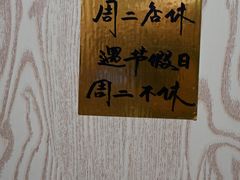 周二店休
遇节假日
周二不休